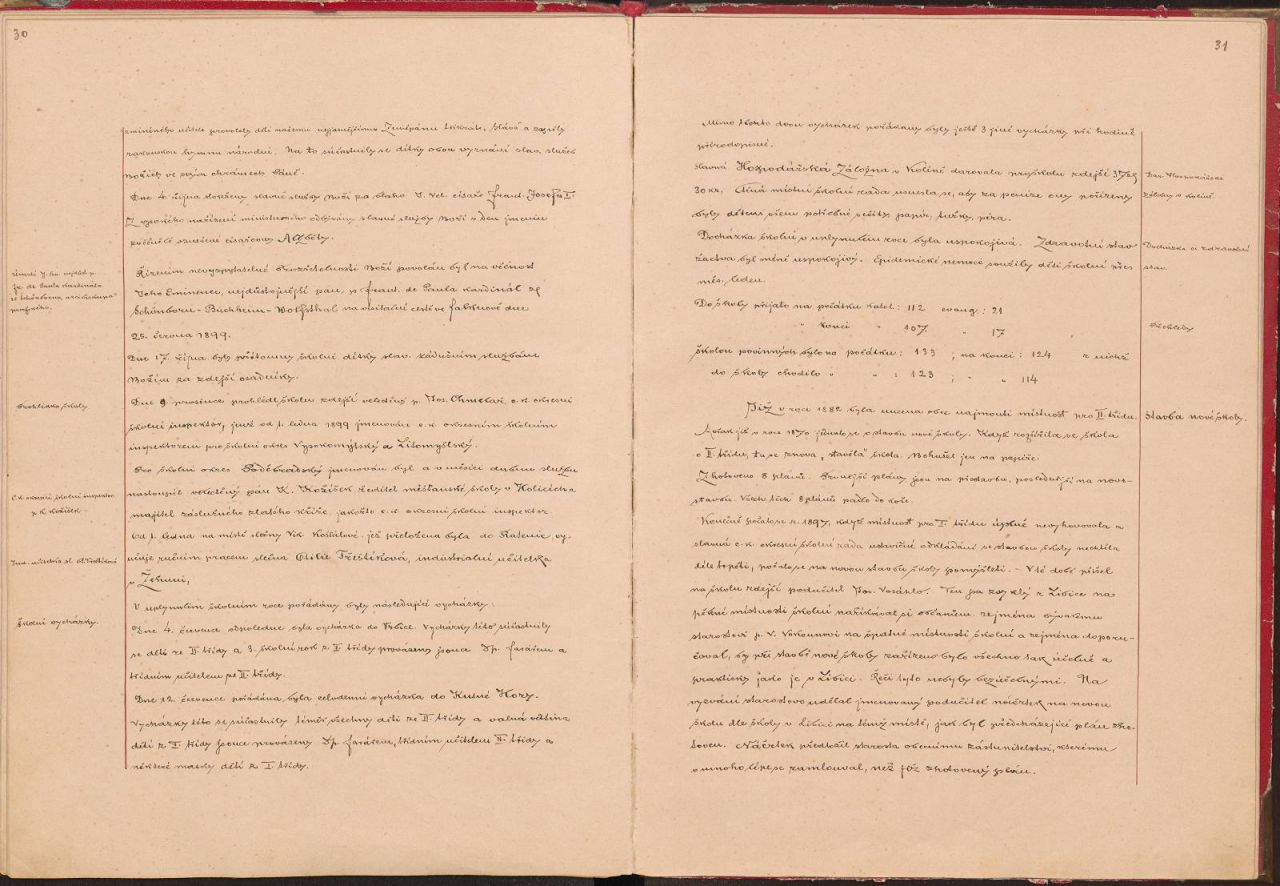 30
zmíněného učitele provolaly děti našemu nejjasnějšímu Zeměpánu třikráte, Sláva a zapěly
rakouskou hymnu národní. Na to súčastnily se dítky obou vyznání slav. služeb
Božích ve svých chrámech Páně.
Dne 4. října slouženy slavné služby Boží za blaho J. Vel. císaře Frant. Josefa I.
Z vysokého nařízení ministerského odbývány slavné služby Boží v den jmenin
císařovny Alžběty.
Úmrtí J. Em. nejdůst. p.
Fr. de Paula kardinála
ze Schönbornu, arcibiskupa
pražského.
Řízením nevyzpytatelné Prozřetelnosti Boží povolán byl na věčnost
Jeho Eminence, nejdůstojnější pán, p. Frant. de Paula kardinál ze
Schönborn-Buchheim-Wolfsthal na visitační cestě ve Falknově dne
25. června 1899.
Dne 17. října byly přítomny školní dítky slav. zádušním službám
Božím za zdejší osadníky.
Prohlídka školy
Dne 9. prosince prohlédl školu zdejší veleděný p. Jos. Chmelař, c. k. okresní
školní inspektor, jenž od 1. ledna 1899 jmenován c. k. okresním školním
inspektorem pro školní okres Vysokomýtský a Litomyšlský.
C. k. okresní školní inspektor
p. K. Kožíšek.
Pro školní okres Poděbradský jmenován byl a v měsíci dubnu službu
nastoupil veleděný pán K. Kožíšek ředitel měšťanské školy v Holicích a
majitel záslužného zlatého kříže, jakožto c. k. okresní školní inspektor.
Ind. učitelka sl. Ot. Třeštíková
Od 1. ledna na místě slečny Vik. Košťálové, jež přeložena byla do Ratenic, vy-
učuje ručním pracem slečna Otilie Třeštíková, industrialní učitelka
v Žehuni.
Školní vycházky.
V uplynulém školním roce pořádány byly následující vycházky:
Dne 4. července odpoledne byla vycházka do Vrbice. Vycházky této súčastnily
se děti ze II. třídy a 3. školní rok z I. třídy provázeny jsouce Dp. farářem a
třídním učitelem ze II. třídy.
Dne 12. července pořádána byla celodenní vycházka do Kutné Hory.
Vycházky této se súčastnily téměř všechny děti ze II. třídy a valná většina
dětí z I. třídy jsouce provázeny Dp. farářem, třídním učitelem II. třídy a
některé matky dětí z I. třídy.
31
Mimo těchto dvou vycházek pořádány byly ještě 3 jiné vycházky při hodině
přírodopisné.
Dar Hospodářské
Záložny v Kolíně.
Slavná Hospodářská Záložna v Kolíně darovala prospěchu zdejší
30 kr. Ctěná místní školní rada usnesla se, aby za peníze ony pořízeny
byly dětem všem potřebné sešity, papír, tužky, péra.
Docházka a zdravotní
stav.
Docházka školní v uplynulém roce byla uspokojivá. Zdravotní stav
žactva byl méně uspokojivý. Epidemické nemoce soužily děti školní přes
měs. leden.
Přehledy
Do školy přijato na počátku katol.: 112 evang.: 21
" konci " 107 " 17
Školou povinných bylo na počátku: 133; na konci: 124 z nichž
do školy chodilo " " : 123 ; " " 114
Stavba nové školy.
Již v roce 1882 byla nucena obec najmouti místnosť pro II. třídu.
Avšak již v roce 1870 jednalo se o stavbu nové školy. Když rozšířila se škola
o II. třídu, tu se znova "stavěla" škola. Bohužel jen na papíře.
Zhotoveno 8 plánů. Prvnější plány jsou na přístavbu, poslednější na novo-
stavbu. Všech těch 8 plánů padlo do koše.
Konečně počátkem r. 1897, když místnosť pro I. třídu úplně nevyhovovala a
slavná c. k. okresní školní rada ustavičné odkládání se stavbou školy nechtěla
déle trpěti, počalo se na novou stavbu školy pomýšleti. - V té době přišel
na školu zdejší podučitel Jos. Vosáhlo. Ten jsa zvyklý z Libice na
pěkné místnosti školní naříkával si občanům, zejména bývalému
starostovi p. V. Vokounovi na špatné místnosti školní a zejména doporu-
čoval, by při stavbě nové školy zařízeno bylo všechno tak účelně a
prakticky jako je v Libici. Řeči tyto nebyly bezúčelnými. Na
vyzvání starostovo udělal jmenovaný podučitel náčrtek na novou
školu dle školy v Libici na témž místě, jak byl předcházející plán zho-
toven. Náčrtek předložil starosta obecnímu zastupitelstvu, kterému
o mnoho lépe se zamlouval, než již zhotovený plán.